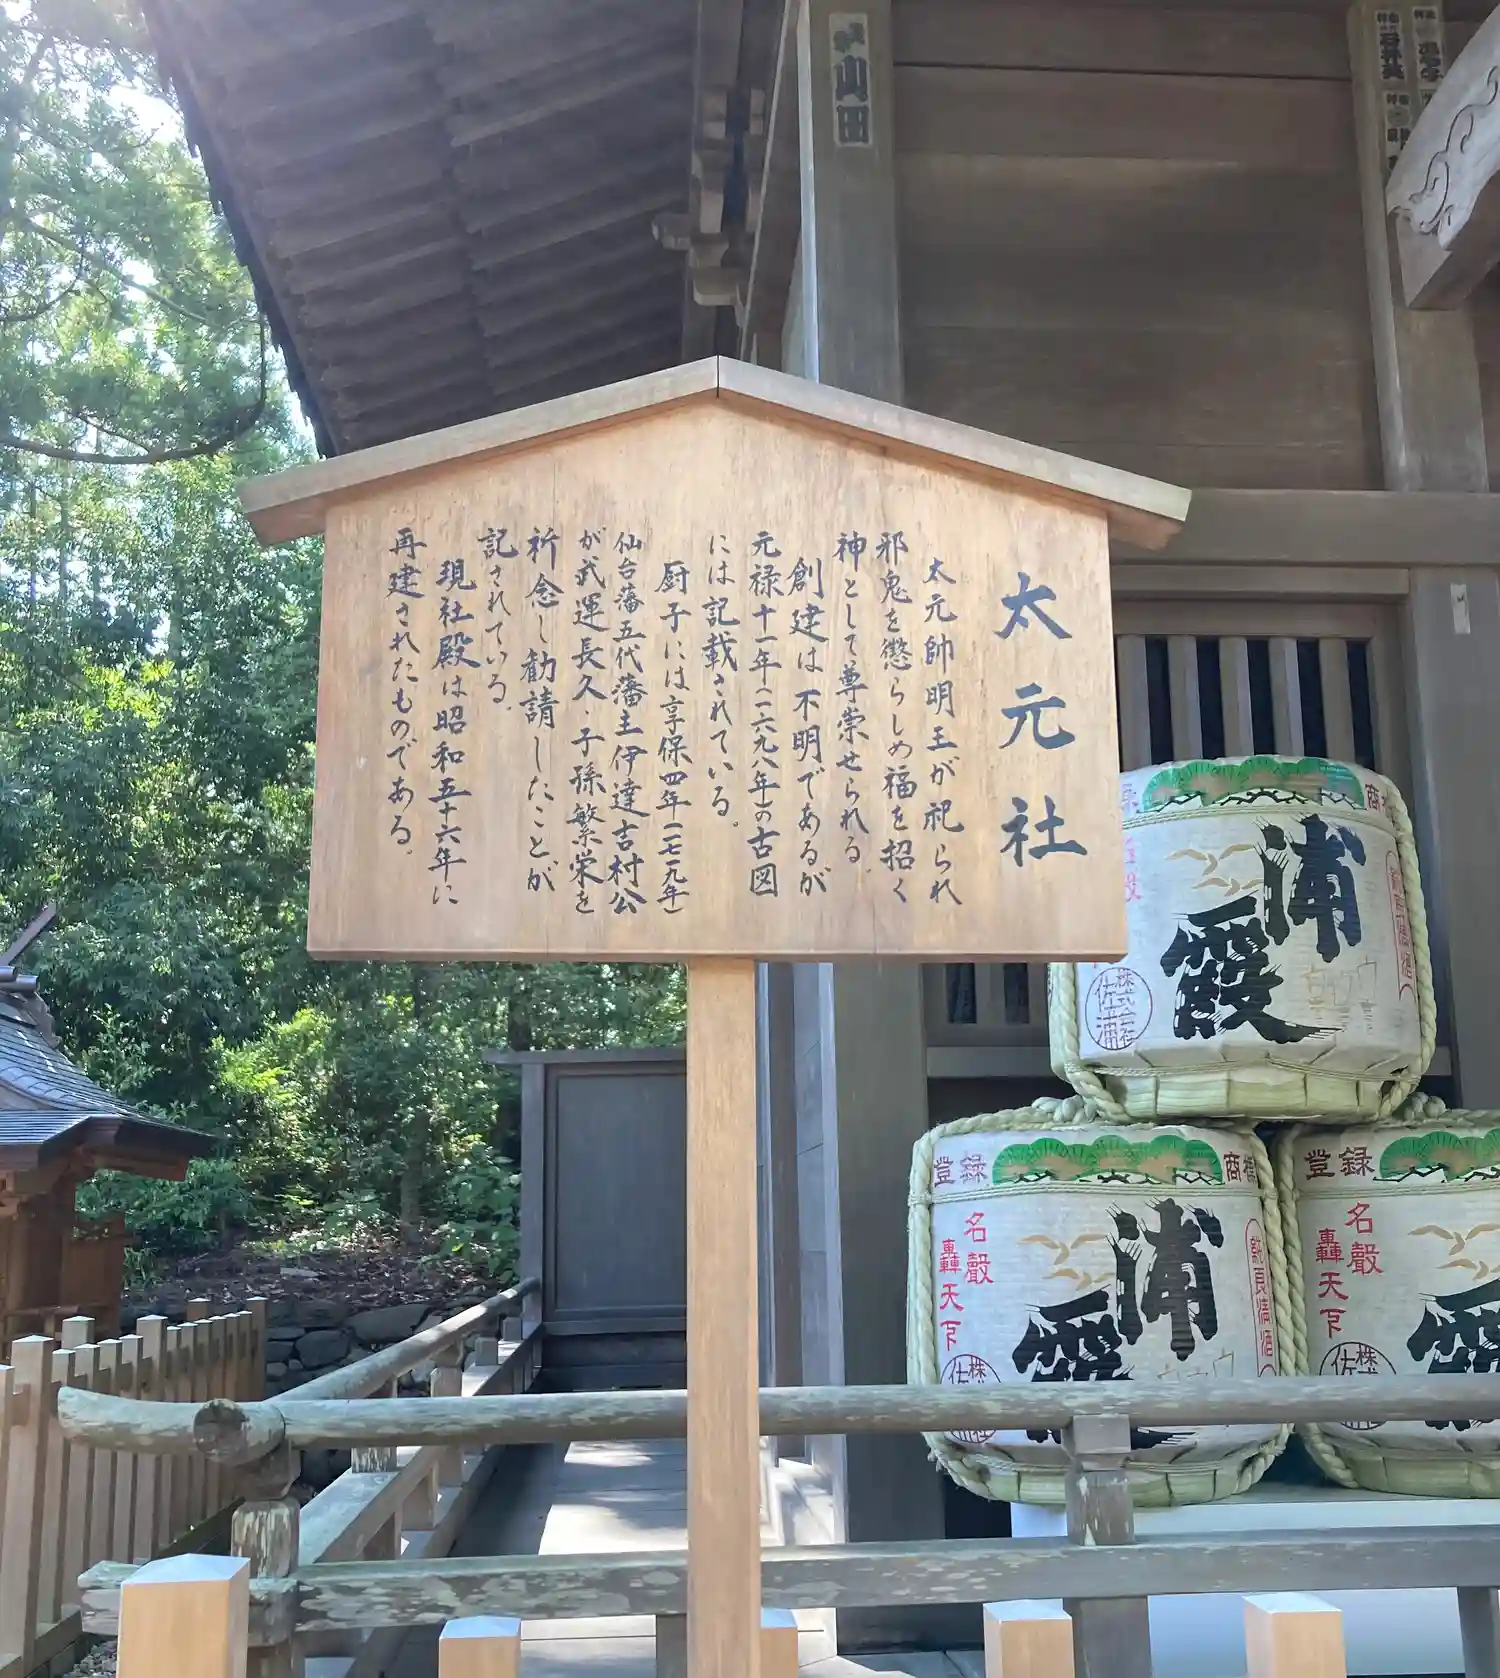 太元社
太元帥明王が祀られ
邪鬼を懲らしめ福を招く
神として尊崇せられる。
創建は不明であるが
元禄十一年(一六九八年)の古図
には記載されている。
厨子には享保四年(一七一九年)
仙台藩五代藩主伊達吉村公
が武運長久・子孫繁栄を
祈念し勧請したことが
記されている。
現社殿は昭和五十六年に
再建されたものである。
山田
商標
浦霞
株式会社
佐浦
登録
商標
名聲
轟天下
浦霞
株
佐
登録
名聲
轟天下
株
佐